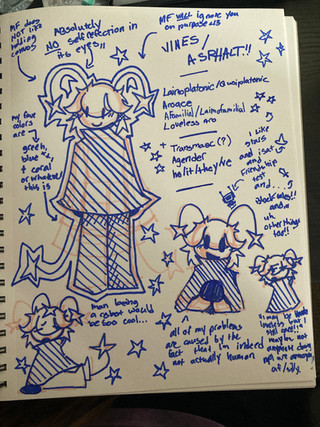 MF does
NOT like
holding
convos
Absolutely
NO self reflection in
its eyes!!
MF will ignore you
on purpose <3
VINES/
ASPHALT!!
Lainoplatonic/Quaiplatonic
Aroace
Afamilial/Lainofamilial
Loveless aro
+ Transmasc(?)
Agender
he/it/they/xe
my fave
colors
are
green,
blue
+ coral
or whatever
this is
I like
stars
and
isat
and
friendship
test
and...
block tales!!
and a
uh
other things
too!!
man being
a robot would
be soo cool...
all of my problems
are caused by the
fact that I'm indeed
not actually human
may be
loveless but I
still
maybe not